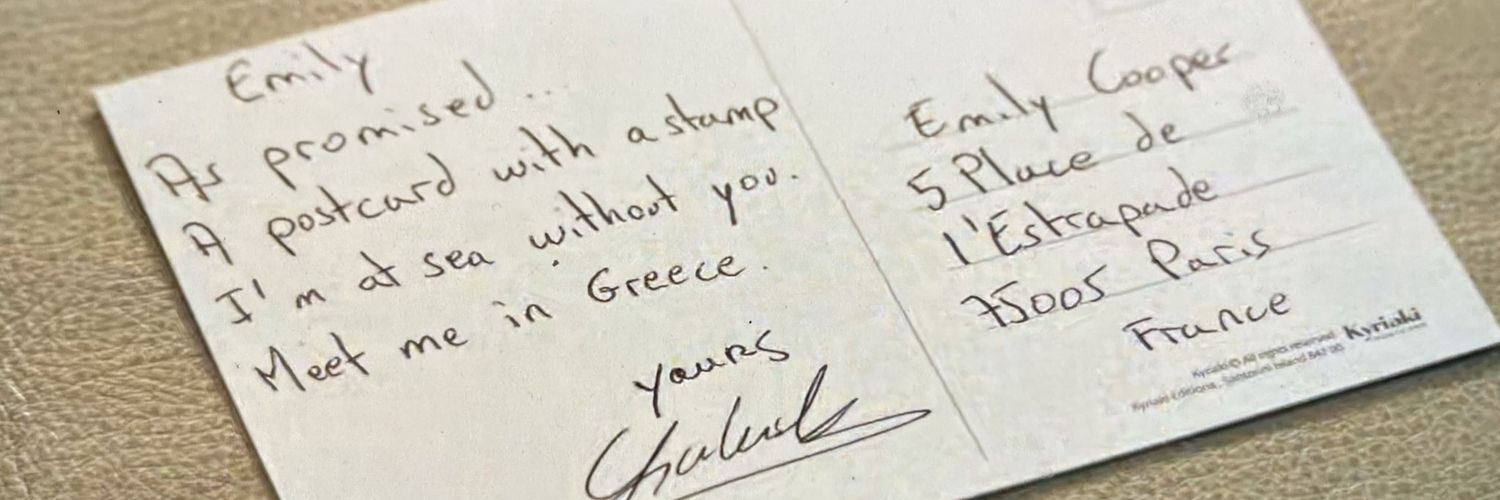 Emily
As promised...
A postcard with a stamp
I'm at sea without you.
Meet me in Greece.
yours
Emily Cooper
5 Place de
l'Estrapade
75005 Paris
France
Kyriaki
Kyriaki © All rights reserved
Kyriaki Editions, Santorini Island 847 00